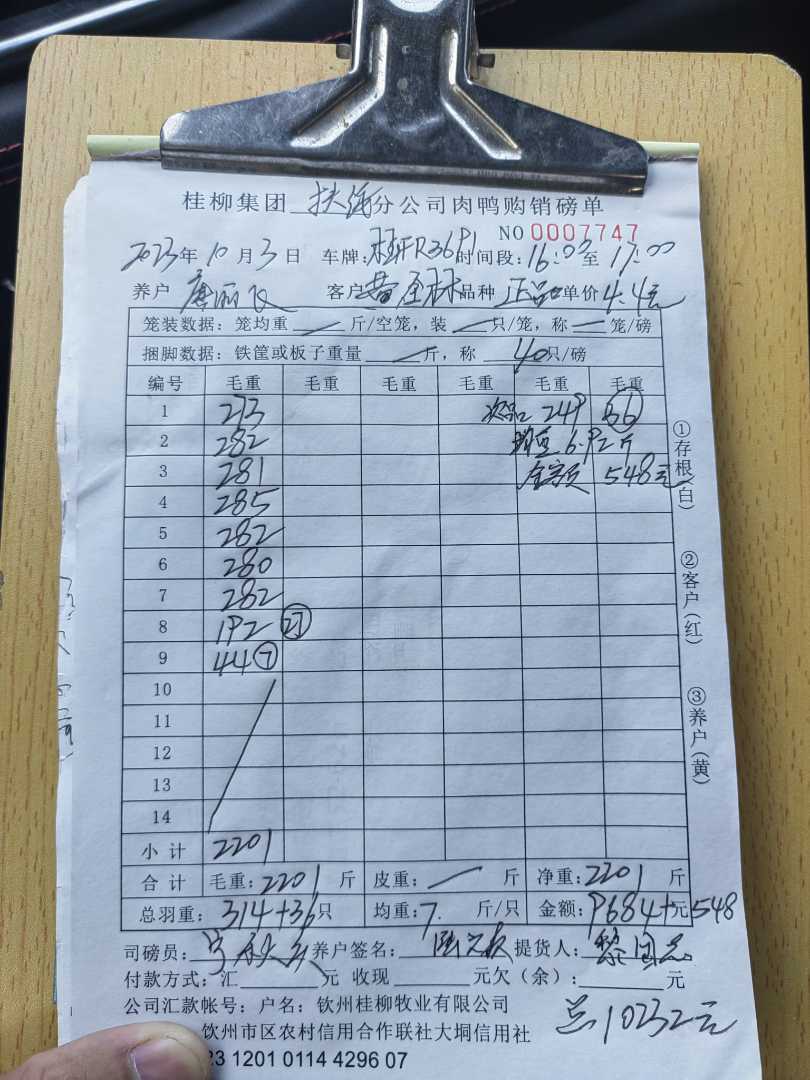 桂柳集团 扶绥 分公司肉鸭购销磅单
NO 0007747
2023年10月3日 车牌: 时间段:16:00至17:00
养户 客户 品种 正品 单价 4.4元
笼装数据: 笼均重 — 斤/空笼, 装 — 只/笼, 称 — 笼/磅
捆脚数据: 铁筐或板子重量 — 斤, 称 40只/磅
编号 毛重 毛重 毛重 毛重 毛重 毛重
1 273 次品: 249 36
2 282 均重 6.92斤
3 281 金额 548元
4 285
5 282
6 280
7 282
8 192 27
9 44 7
10
11
12
13
14
小计 2201
合计 毛重:2201 斤 皮重: — 斤 净重:2201 斤
总羽重: 314+36只 均重:7. 斤/只 金额:9684+元548
司磅员: 养户签名: 提货人:
付款方式: 汇 元 收现 元欠(余): 元
公司汇款帐号: 户名: 钦州桂柳牧业有限公司
钦州市区农村信用合作联社大垌信用社
23 1201 0114 4296 07
总10232元
①存根(白)
②客户(红)
③养户(黄)